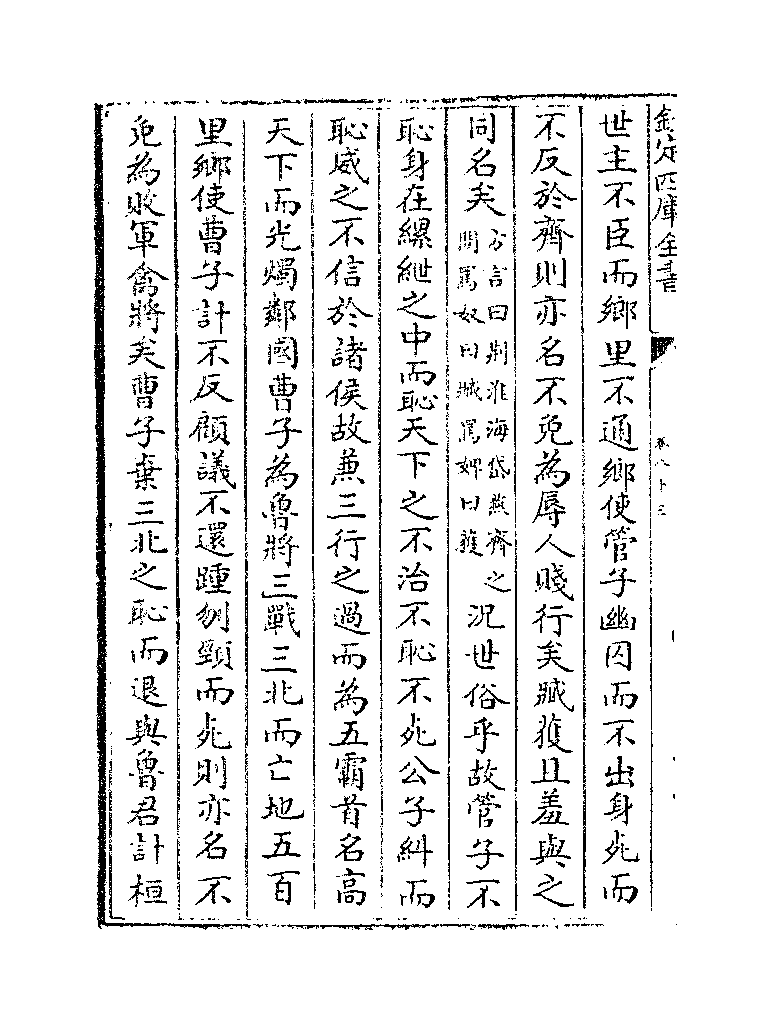 欽定四庫全書
卷八十三
世主不臣而鄉里不通鄉使管子幽囚而不出身死而
不反於齊則亦名不免為辱人賤行矣臧獲且羞與之
同名矣方言曰荆淮海岱燕齊之間罵奴曰臧罵婢曰獲況世俗乎故管子不
恥身在縲絏之中而恥天下之不治不恥不死公子糾而
恥威之不信於諸侯故兼三行之過而為五霸首名高
天下而光燭鄰國曹子為魯將三戰三北而亡地五百
里鄉使曹子計不反顧議不還踵刎頸而死則亦名不
免為敗軍禽將矣曹子棄三北之恥而退與魯君計桓